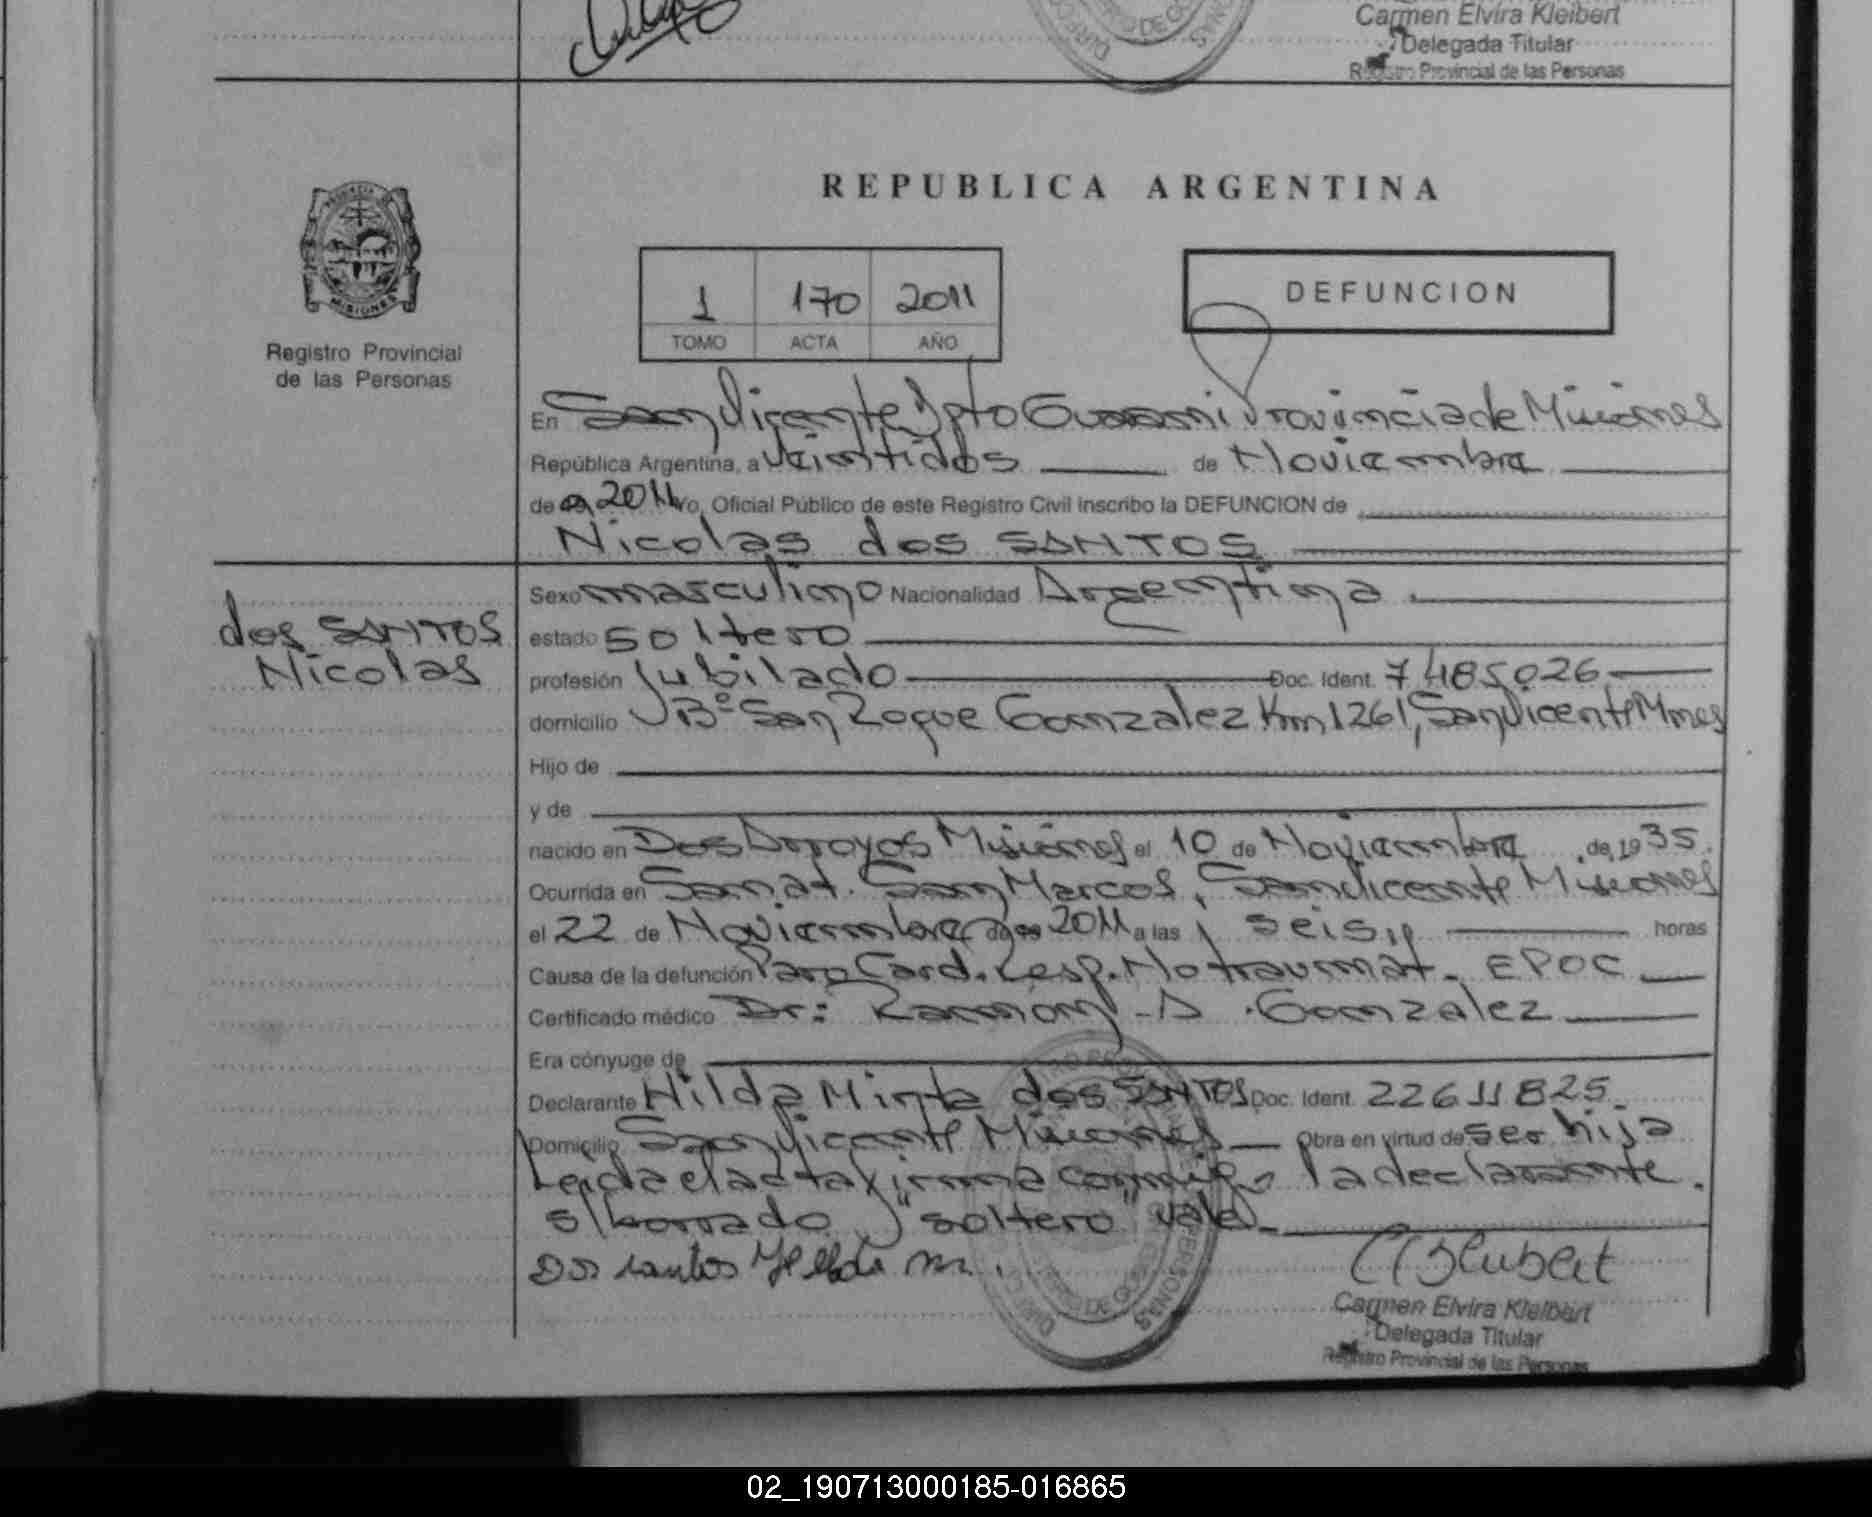 Carmen Elvira Kleibert
Delegada Titular
Registro Provincial de las Personas
REPUBLICA ARGENTINA
MISIONES
Registro Provincial
de las Personas
1 170 2011
TOMO ACTA AÑO
DEFUNCION
En San Vicente Dpto Guarani Provincia de Misiones
República Argentina, a Veintidos de Noviembre
de 2011 Yo, Oficial Público de este Registro Civil inscribo la DEFUNCION de
Nicolas dos SANTOS
dos SANTOS
Nicolas
Sexo masculino Nacionalidad Argentina
estado soltero
profesión Jubilado Doc. Ident. 7485026
domicilio Bº San Roque Gonzalez Km 1261, San Vicente Mnes
Hijo de
y de
nacido en Dos Arroyos Misiones el 10 de Noviembre de 1935
Ocurrida en Sanat. San Marcos, San Vicente Misiones
el 22 de Noviembre de 2011 a las seis horas
Causa de la defunción Paro Card. Resp. No traumat. EPOC
Certificado médico Dr: Ramón A. Gonzalez
Era cónyuge de
Declarante Hilda Mirta dos SANTOS Doc. Ident. 22611825
Domicilio San Vicente Misiones Obra en virtud de ser hija
Leida el acta firma conmigo la declarante.
s/borrado "soltero" vale
Dos santos Hilda m.
Carmen Elvira Kleibert
Delegada Titular
Registro Provincial de las Personas
02_190713000185-016865